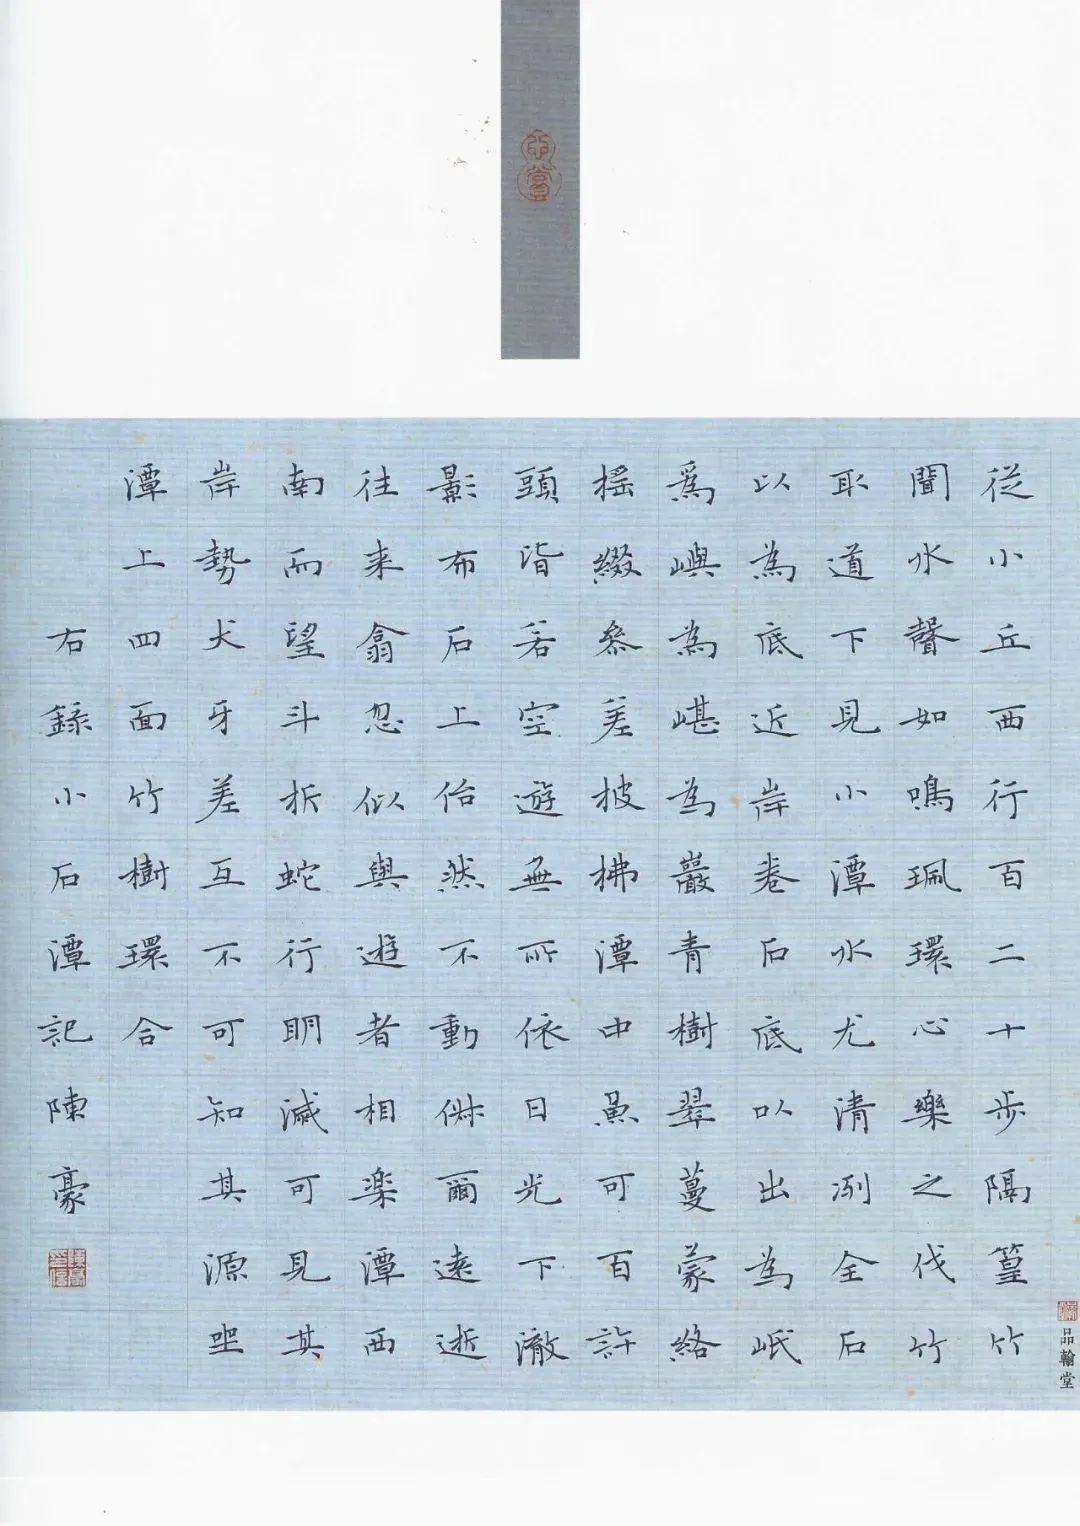 從小丘西行百二十步隔篁竹
聞水聲如鳴珮環心樂之伐竹
取道下見小潭水尤清冽全石
以為底近岸卷石底以出為坻
為嶼為嵁為巖青樹翠蔓蒙絡
搖綴參差披拂潭中魚可百許
頭皆若空遊無所依日光下澈
影布石上佁然不動俶爾遠逝
往来翕忽似與遊者相樂潭西
南而望斗折蛇行明滅可見其
岸勢犬牙差互不可知其源坐
潭上四面竹樹環合
右錄小石潭記陳豪
品翰堂